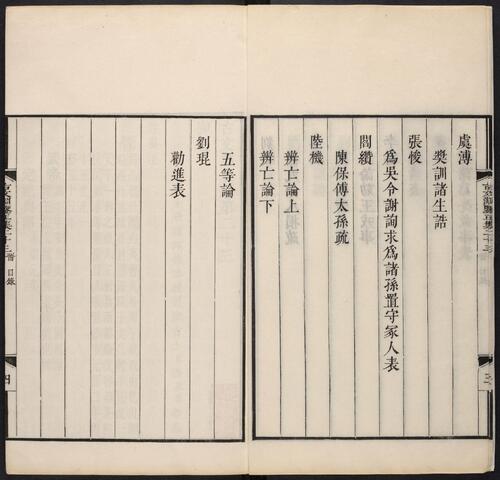 虞溥
奬訓諸生誥
張悛
為吳令謝詢求為諸孫置守冢人表
閻纘
陳保傅太孫疏
陸機
辨亡論上
辨亡論下
五等論
劉琨
勸進表
目錄
四